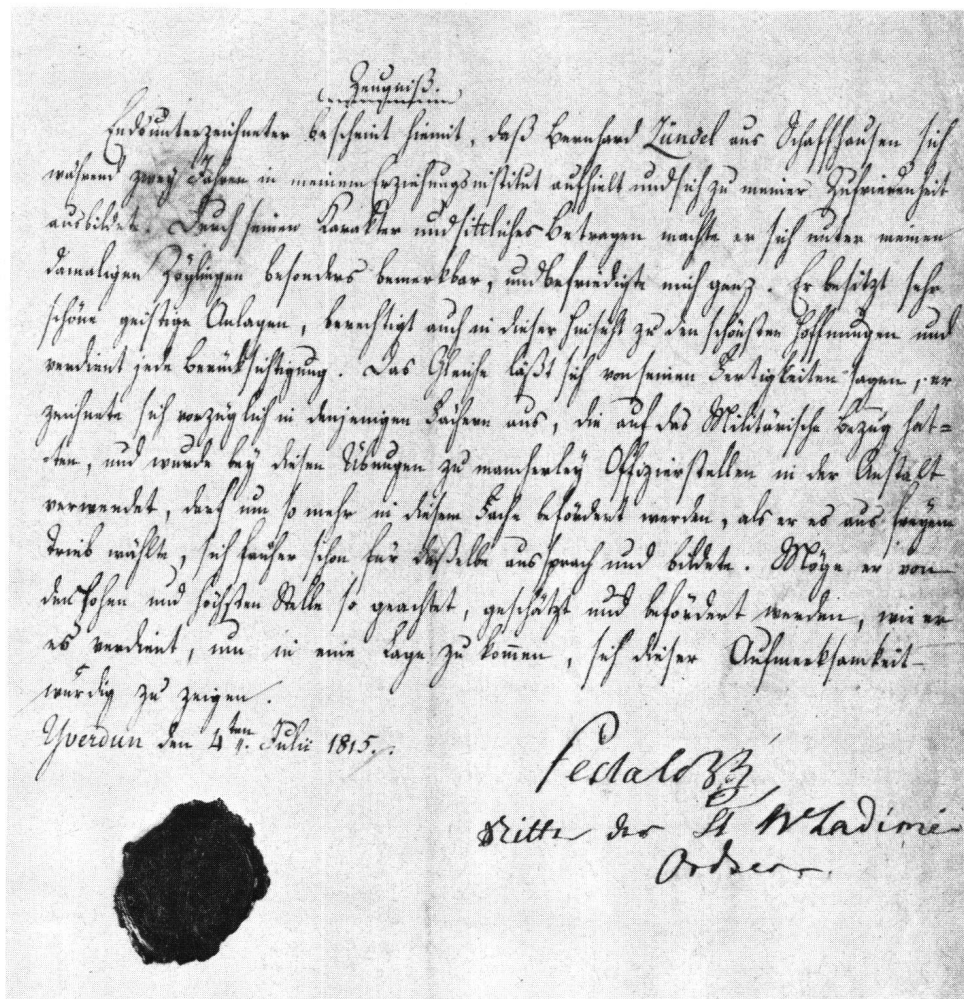 Zeugniß.
Endsunterzeichneter bescheint hiemit, daß Bernhard Zündel aus Schaffhausen sich
während zwey Jahren in meinem Erziehungsinstitut aufhielt und sich zu meiner Zufriedenheit
ausbildete. Durch seinen Karakter und sittliches Betragen machte er sich unter meinen
damaligen Zöglingen besonders bemerkbar, und befriedigte mich ganz. Er besitzt sehr
schöne geistige Anlagen, berechtigt auch in dieser Hinsicht zu den schönsten Hoffnungen und
verdient jede Berücksichtigung. Das Gleiche läßt sich von seinen Fertigkeiten sagen, er
zeichnete sich vorzüglich in denjenigen Fächern aus, die auf das Militärische Bezug hat=
ten, und wurde bey diesen Übungen zu mancherley Offizierstellen in der Anstalt
verwendet, darf um so mehr in diesem Fache befördert werden, als er es aus freyem
Trieb wählte, sich früher schon für daßelbe aussprach und bildete. Möge er von
den Hohen und höchsten Stelle so geachtet, geschätzt und befördert werden, wie er
es verdient, um in eine Lage zu kommen, sich dieser Aufmerksamkeit
würdig zu zeigen.
Yverdun den 4ten Julii 1815.
Pestalozzi
Ritter des St Wladimir
Ordens.